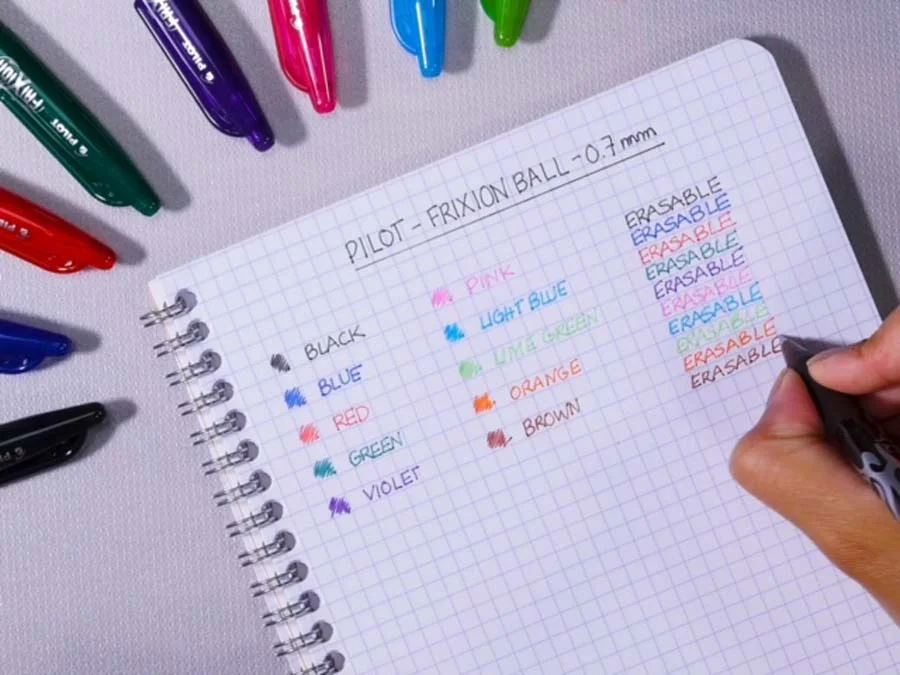 FRIXION
PILOT
PILOT
PILOT
PILOT - FRIXION BALL - 0.7 mm
BLACK
BLUE
RED
GREEN
VIOLET
PINK
LIGHT BLUE
LIME GREEN
ORANGE
BROWN
ERASABLE
ERASABLE
ERASABLE
ERASABLE
ERASABLE
ERASABLE
ERASABLE
ERASABLE
ERASABLE
ERASABLE